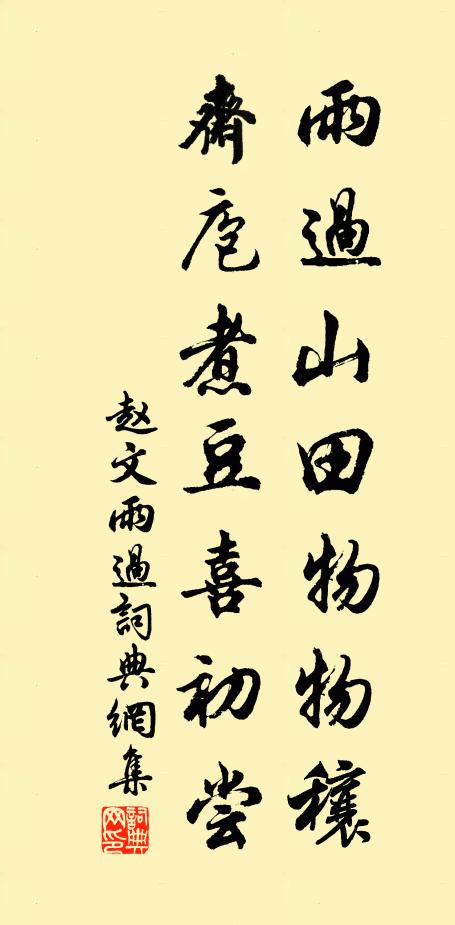 雨過山田物物穰
齋庖煮豆喜初尝
赵文雨過詞典網集
詞典网印